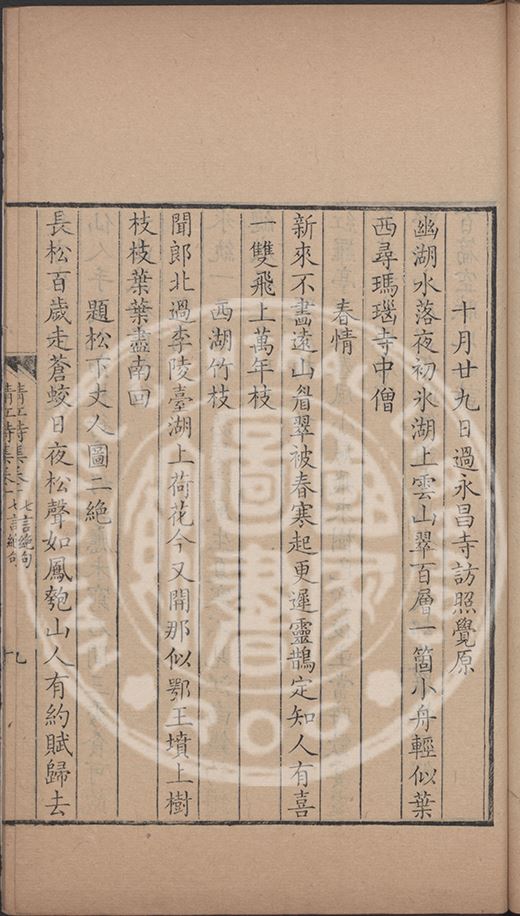 十月廿九日過永昌寺訪照覺原
幽湖水落夜初氷湖上雲山翠百層一箇小舟輕似葉
西尋瑪瑙寺中僧
春情
新來不畫遠山眉翠被春寒起更遲靈鵲定知人有喜
一雙飛上萬年枝
西湖竹枝
聞郎北過李陵臺湖上荷花今又開那似鄂王墳上樹
枝枝葉葉盡南回
題松下丈人圖二絶
長松百歲走蒼蛟日夜松聲如鳳匏山人有約賦歸去
清江詩集卷十 七言絶句
九